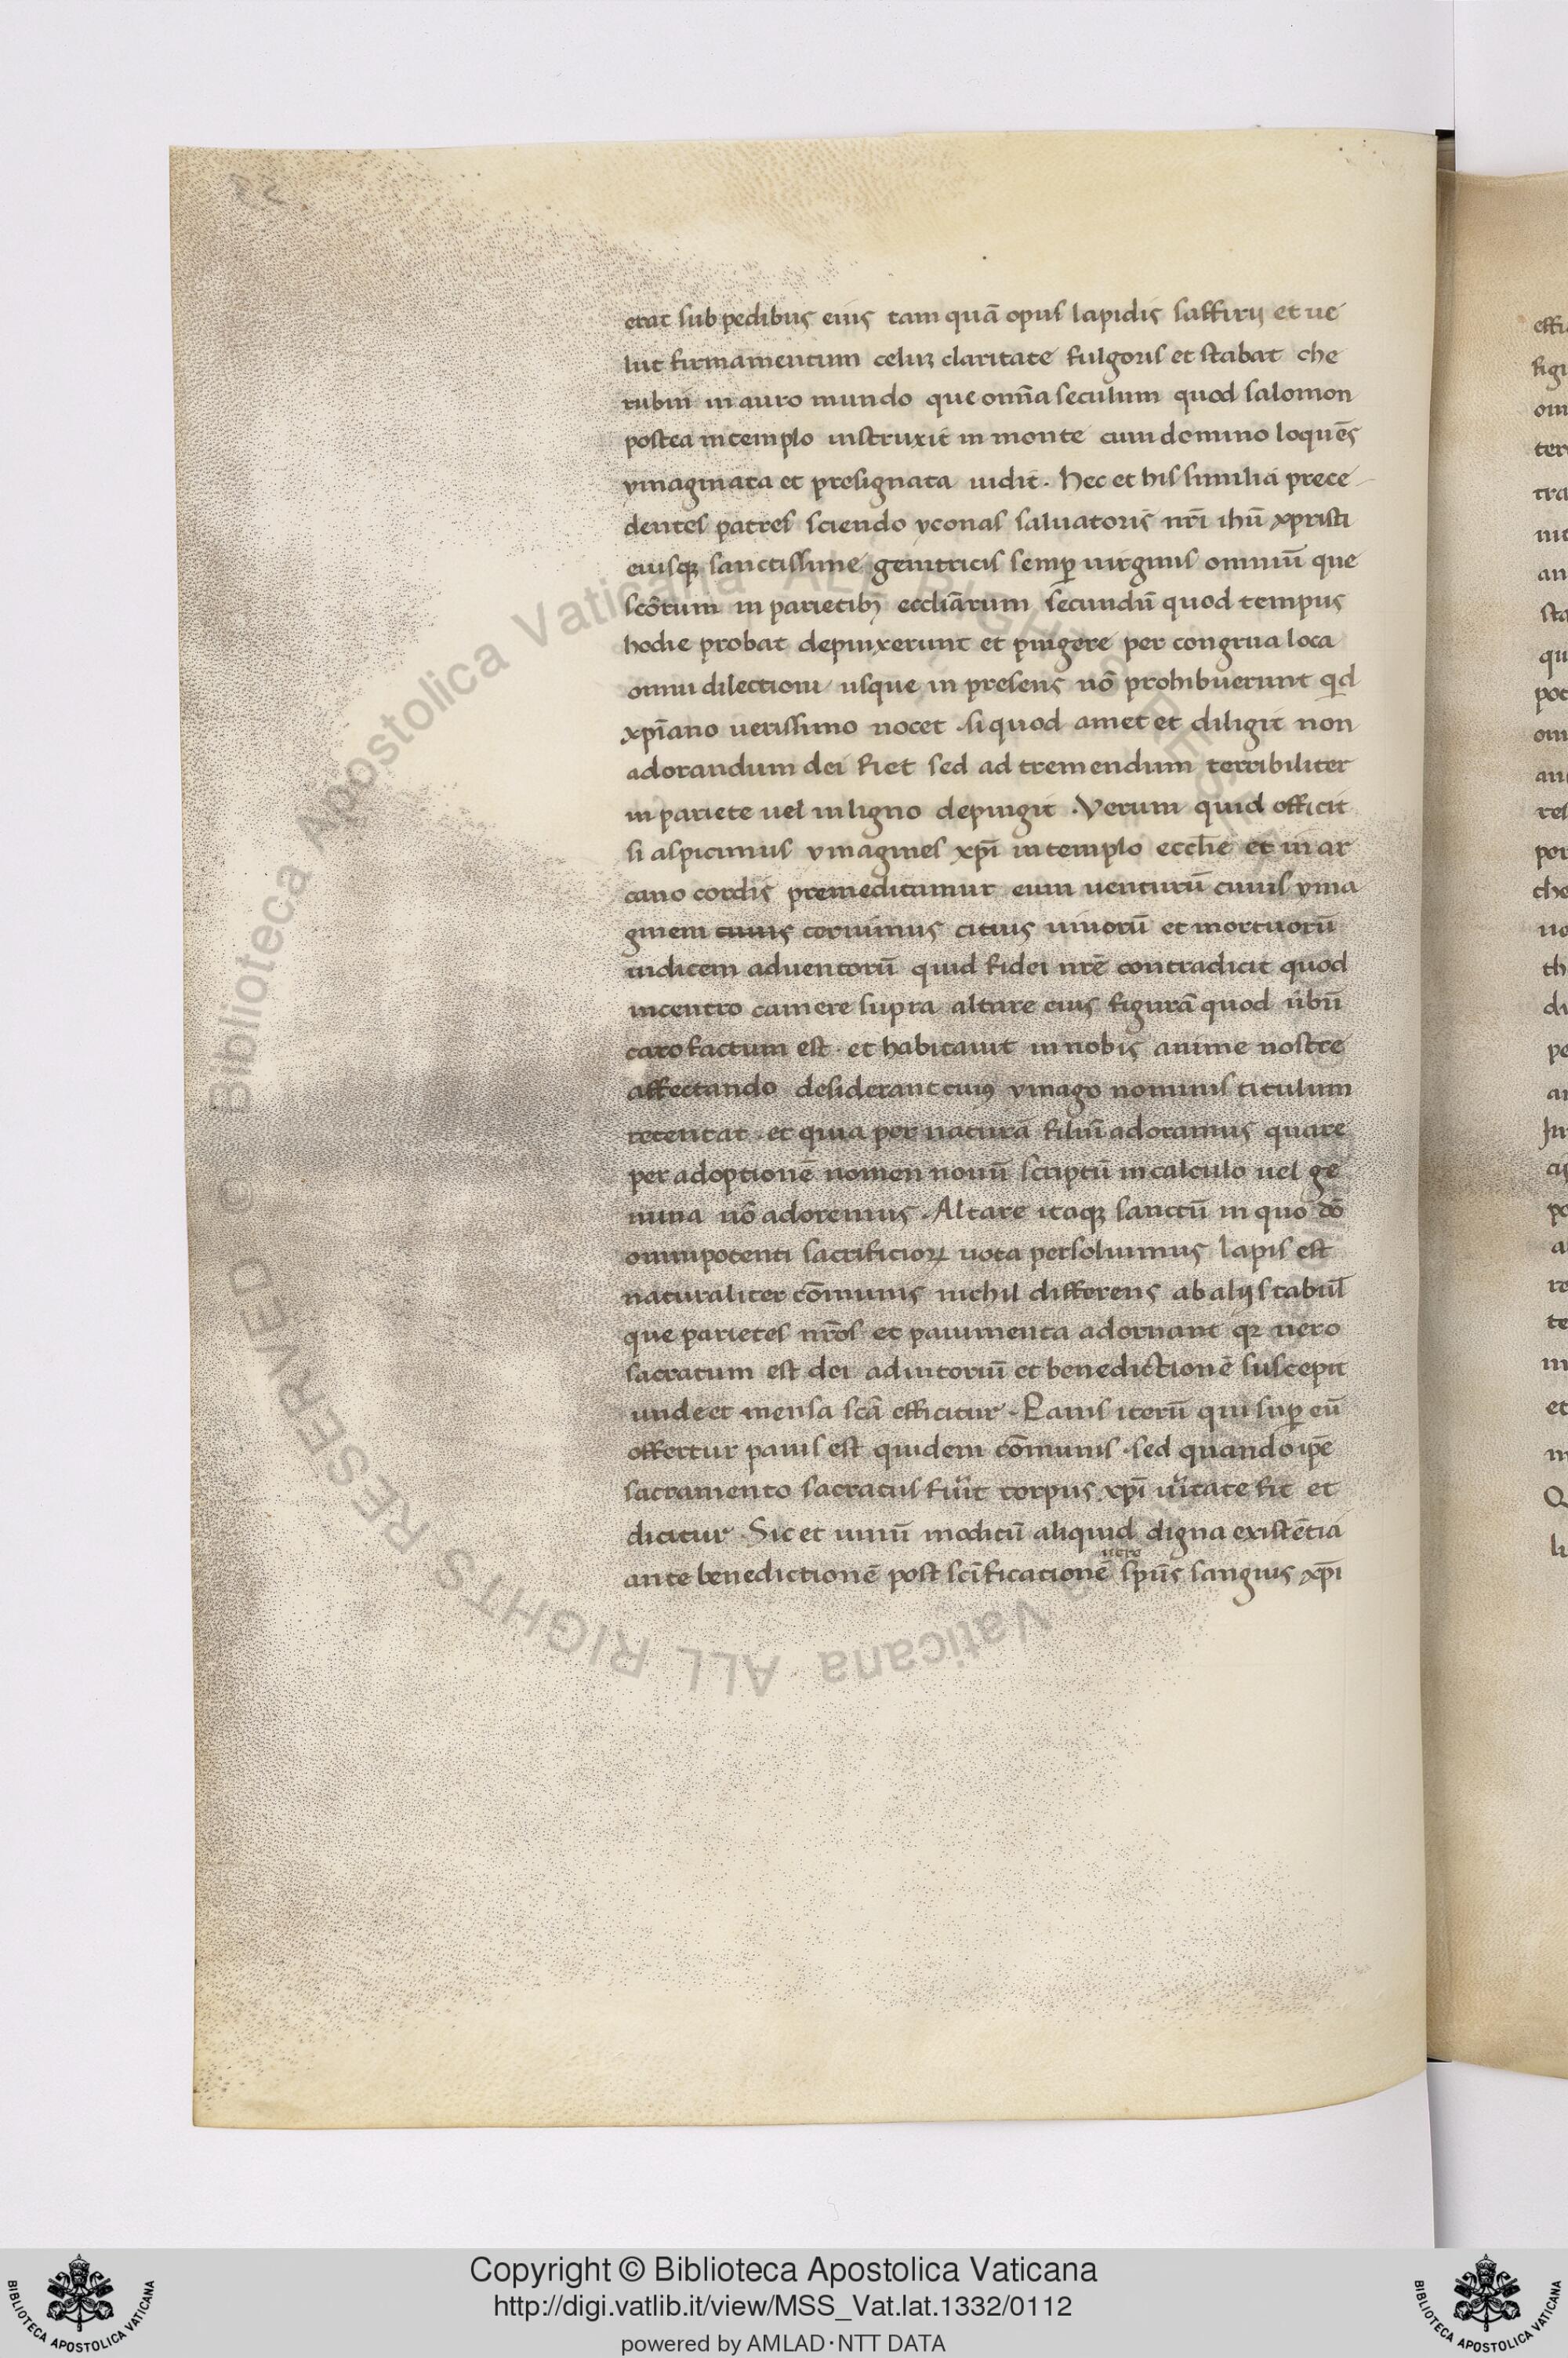 erat sub pedibus eius tam quā opus lapidis saffirij et ue
lut firmamentum celiꝫ claritate fulgoris et stabat che
rubin in auro mundo que omīa seculum quod salomon
postea in templo instruxit in monte cum domino loquēs
ymaginata et presignata uidit . Hec et his similia prece
dentes patres sciendo yconas saluatoris nrī ihū xpristi
eiusqꝫ sanctissime genitricis semꝑ uirginis omniū que
scōrum in parietibꝫ eccliārum secundū quod tempus
hodie probat depinxerunt et pingere per congrua loca
omni dilectioni usque in presens nō prohibuerunt qd
xpīano uerissimo nocet . si quod amet et diligit non
adorandum dei fiet sed ad tremendum terribiliter
in pariete uel in ligno depingit . Verum quid officit
si aspicimus ymagines xpī in templo ecclīe et in ar
cano cordis premeditamur eum venturū cuius yma
ginem cuius cernimus citius uiuorū et mortuorū
iudicem aduentorū quid fidei nrē contradicit quod
in centro camere supra altare eius figurā quod ūbū
caro factum est . et habitauit in nobis anime nostre
affectando desiderant cuiꝰ ymago nominis titulum
retentat . et quia per naturā filiū adoramus quare
per adoptionē nomen nouū scriptū in calculo uel ge
mina nō adoremus . Altare itaqꝫ sanctū in quo dō
omnipotenti sacrificioꝝ uota persoluimus lapis est
naturaliter cōmunis nichil differens ab alijs tabul̄
que parietes nrōs et pauimenta adornant qꝛ uero
sacratum est dei adiutoriū et benedictionē suscepit
unde et mensa scā efficitur . Panis iterū qui suꝑ eū
offertur panis est quidem cōmunis . sed quando ipē
sacramento sacratus fuīt corpus xpī uītate fit et
dicitur . Sic et uinū modicū aliquid digna existētia
ante benedictionē post scīficationē uero spūs sanguis xpī
Copyright © Biblioteca Apostolica Vaticana
http://digi.vatlib.it/view/MSS_Vat.lat.1332/0112
powered by AMLAD·NTT DATA